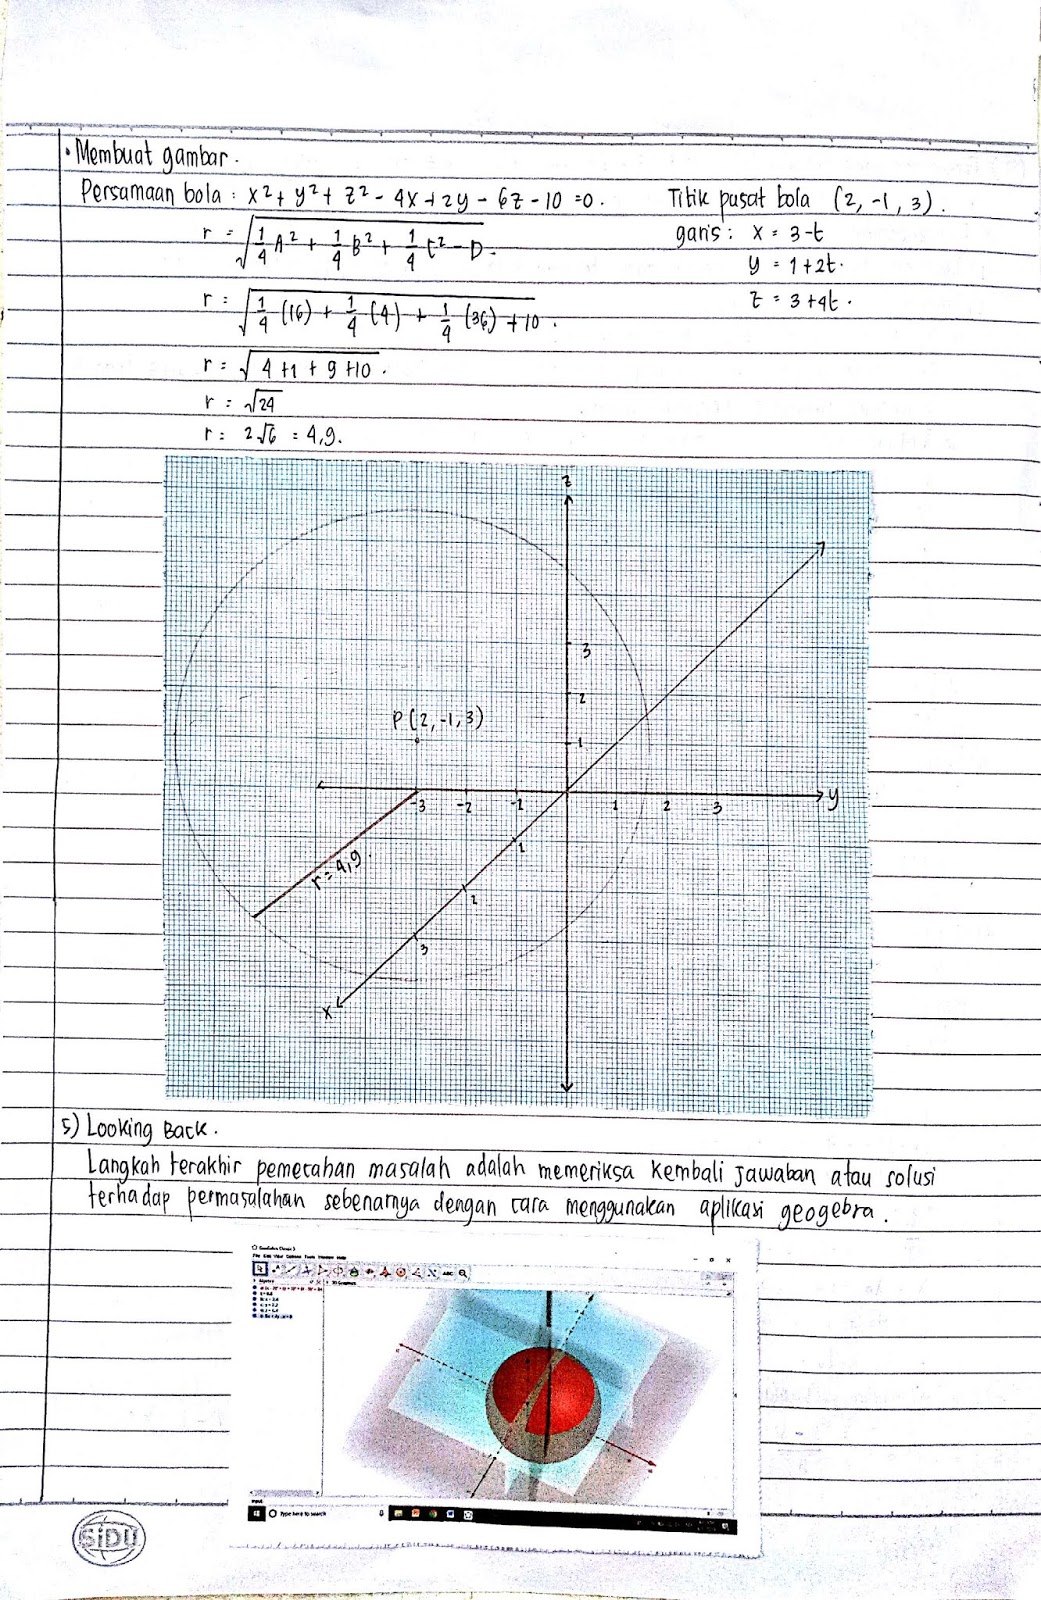 • Membuat gambar.
Persamaan bola : x² + y² + z² - 4x + 2y - 6z - 10 = 0.
Titik pusat bola (2, -1, 3).
r = √(1/4 A² + 1/4 B² + 1/4 C² - D).
garis : x = 3-t
y = 1+2t.
z = 3+4t.
r = √(1/4 (16) + 1/4 (4) + 1/4 (36) + 10).
r = √(4 + 1 + 9 + 10).
r = √24
r = 2√6 = 4,9.
z
3
2
P(2, -1, 3)
1
-3 -2 -1 1 2 3 y
r = 4,9.
1
2
3
x
5) Looking Back.
Langkah terakhir pemecahan masalah adalah memeriksa kembali jawaban atau solusi
terhadap permasalahan sebenarnya dengan cara menggunakan aplikasi geogebra.
GeoGebra Classic 5
File Edit View Options Tools Window Help
Algebra
3D Graphics
Input:
Type here to search
SiDU